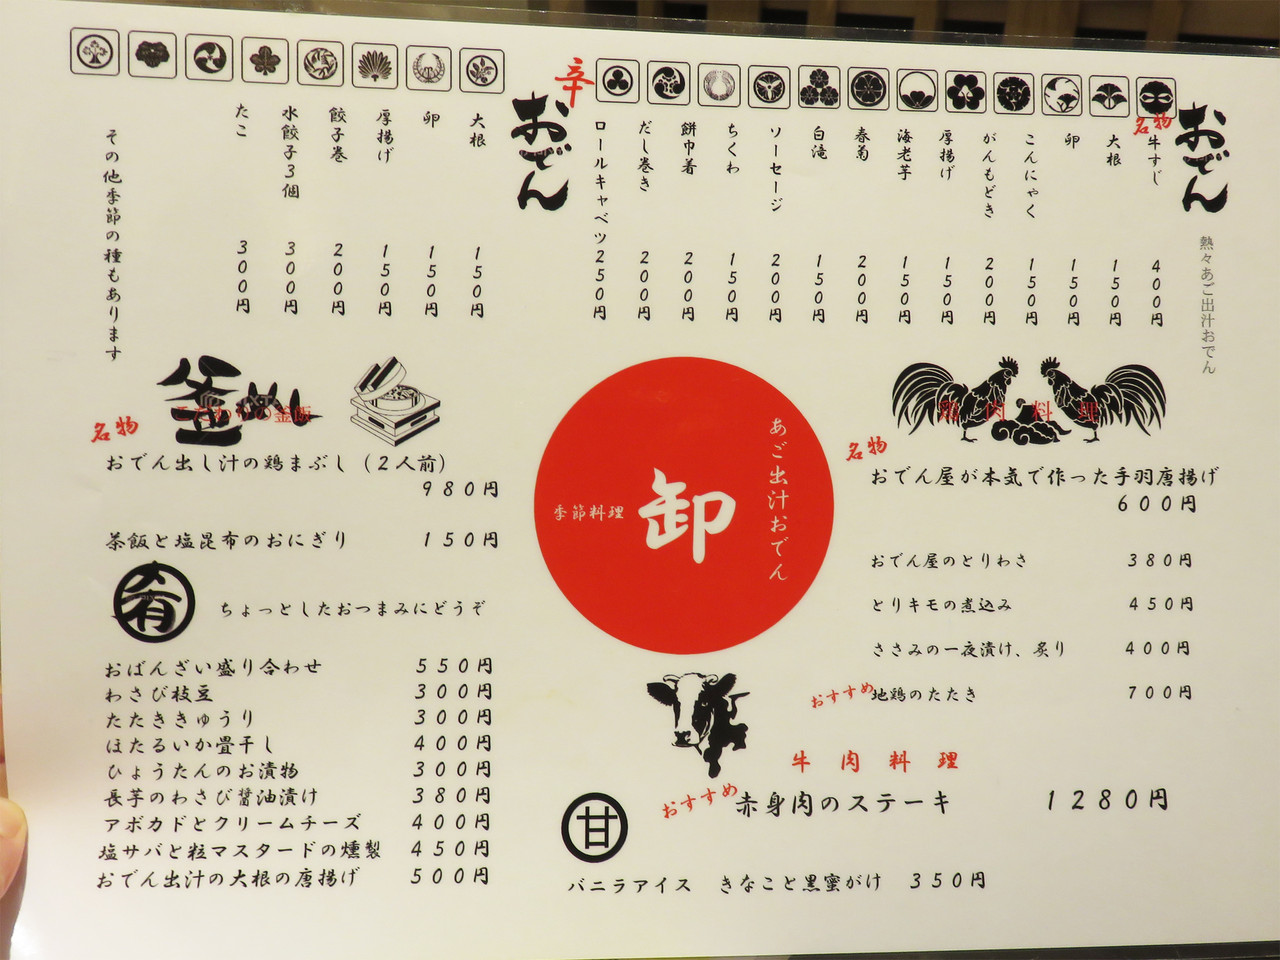 おでん
熱々あご出汁おでん
名物
牛すじ 400円
大根 150円
卵 150円
こんにゃく 150円
がんもどき 200円
厚揚げ 150円
海老芋 150円
春菊 200円
白滝 150円
ソーセージ 200円
ちくわ 150円
餅巾着 200円
だし巻き 200円
ロールキャベツ 250円
辛
おでん
大根 150円
卵 150円
厚揚げ 150円
餃子巻 200円
水餃子3個 300円
たこ 300円
その他季節の種もあります
釜
こだわりの釜飯
名物
おでん出し汁の鶏まぶし(2人前)
980円
茶飯と塩昆布のおにぎり 150円
肴
ちょっとしたおつまみにどうぞ
おばんざい盛り合わせ 550円
わさび枝豆 300円
たたききゅうり 300円
ほたるいか畳干し 400円
ひょうたんのお漬物 300円
長芋のわさび醤油漬け 380円
アボカドとクリームチーズ 400円
塩サバと粒マスタードの燻製 450円
おでん出汁の大根の唐揚げ 500円
あご出汁おでん
卸
季節料理
鶏肉料理
名物
おでん屋が本気で作った手羽唐揚げ
600円
おでん屋のとりわさ 380円
とりキモの煮込み 450円
ささみの一夜漬け、炙り 400円
おすすめ 地鶏のたたき 700円
牛肉料理
おすすめ 赤身肉のステーキ 1280円
甘
バニラアイス きなこと黒蜜がけ 350円